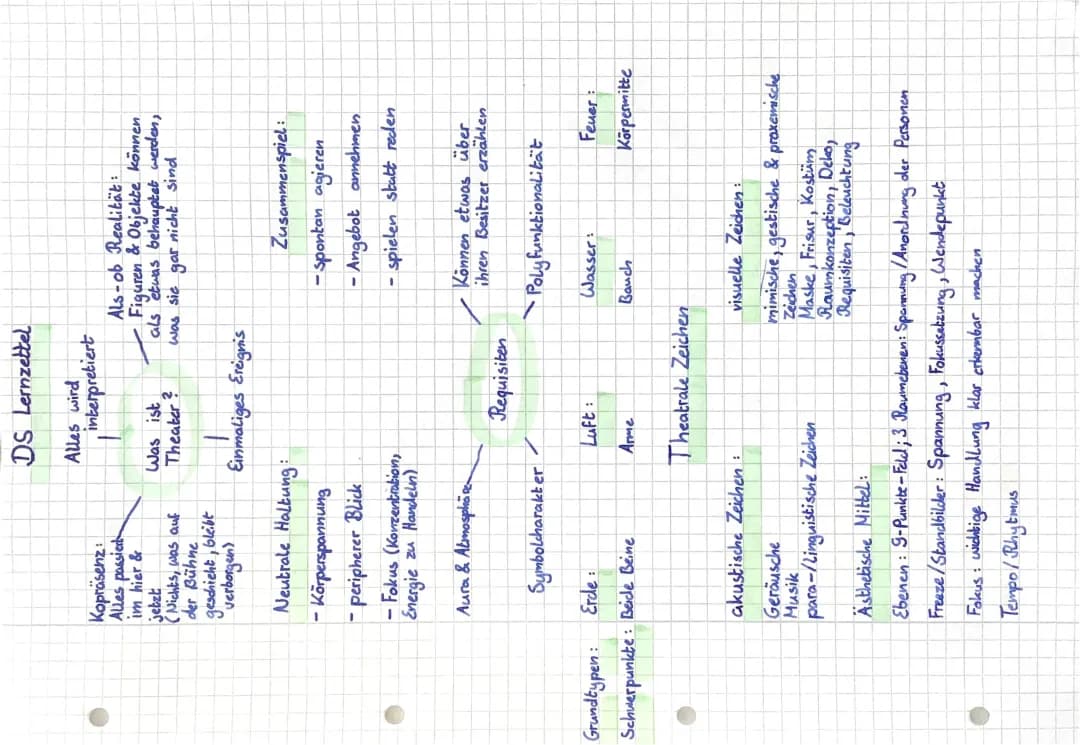 DS Lernzettel
Alles wird
interpretiert
Kopräsenz:
Alles passiert
im hier &
jetzt
(Nichts, was auf
der Bühne
geschieht, bleibt
verborgen)
Was ist
Theater?
Als-ob Realität:
Figuren & Objekte können
als etwas behauptet werden,
was sie gar nicht sind
Einmaliges Ereignis
Neutrale Haltung:
- Körperspannung
- peripherer Blick
- Fokus (Konzentration,
Energie zu Handeln)
Zusammenspiel:
- spontan agieren
- Angebot annehmen
- spielen statt reden
Aura & Atmosphäre
Requisiten
Können etwas über
ihren Besitzer erzählen
Symbolcharakter
Polyfunktionalität
Grundtypen: Erde: Luft: Wasser: Feuer:
Schwerpunkte: Beide Beine Arme Bauch Körpermitte
Theatrale Zeichen
akustische Zeichen:
Geräusche
Musik
para-/linguistische Zeichen
visuelle Zeichen:
mimische, gestische & proxemische
Zeichen
Maske, Frisur, Kostüm
Raumkonzeption, Deko,
Requisiten, Beleuchtung
Ästhetische Mittel:
Ebenen: 9-Punkte-Feld; 3 Raumebenen: Spannung/Anordnung der Personen
Freeze/Standbilder: Spannung, Fokussetzung, Wendepunkt
Fokus: wichtige Handlung klar erkennbar machen
Tempo/Rhytmus